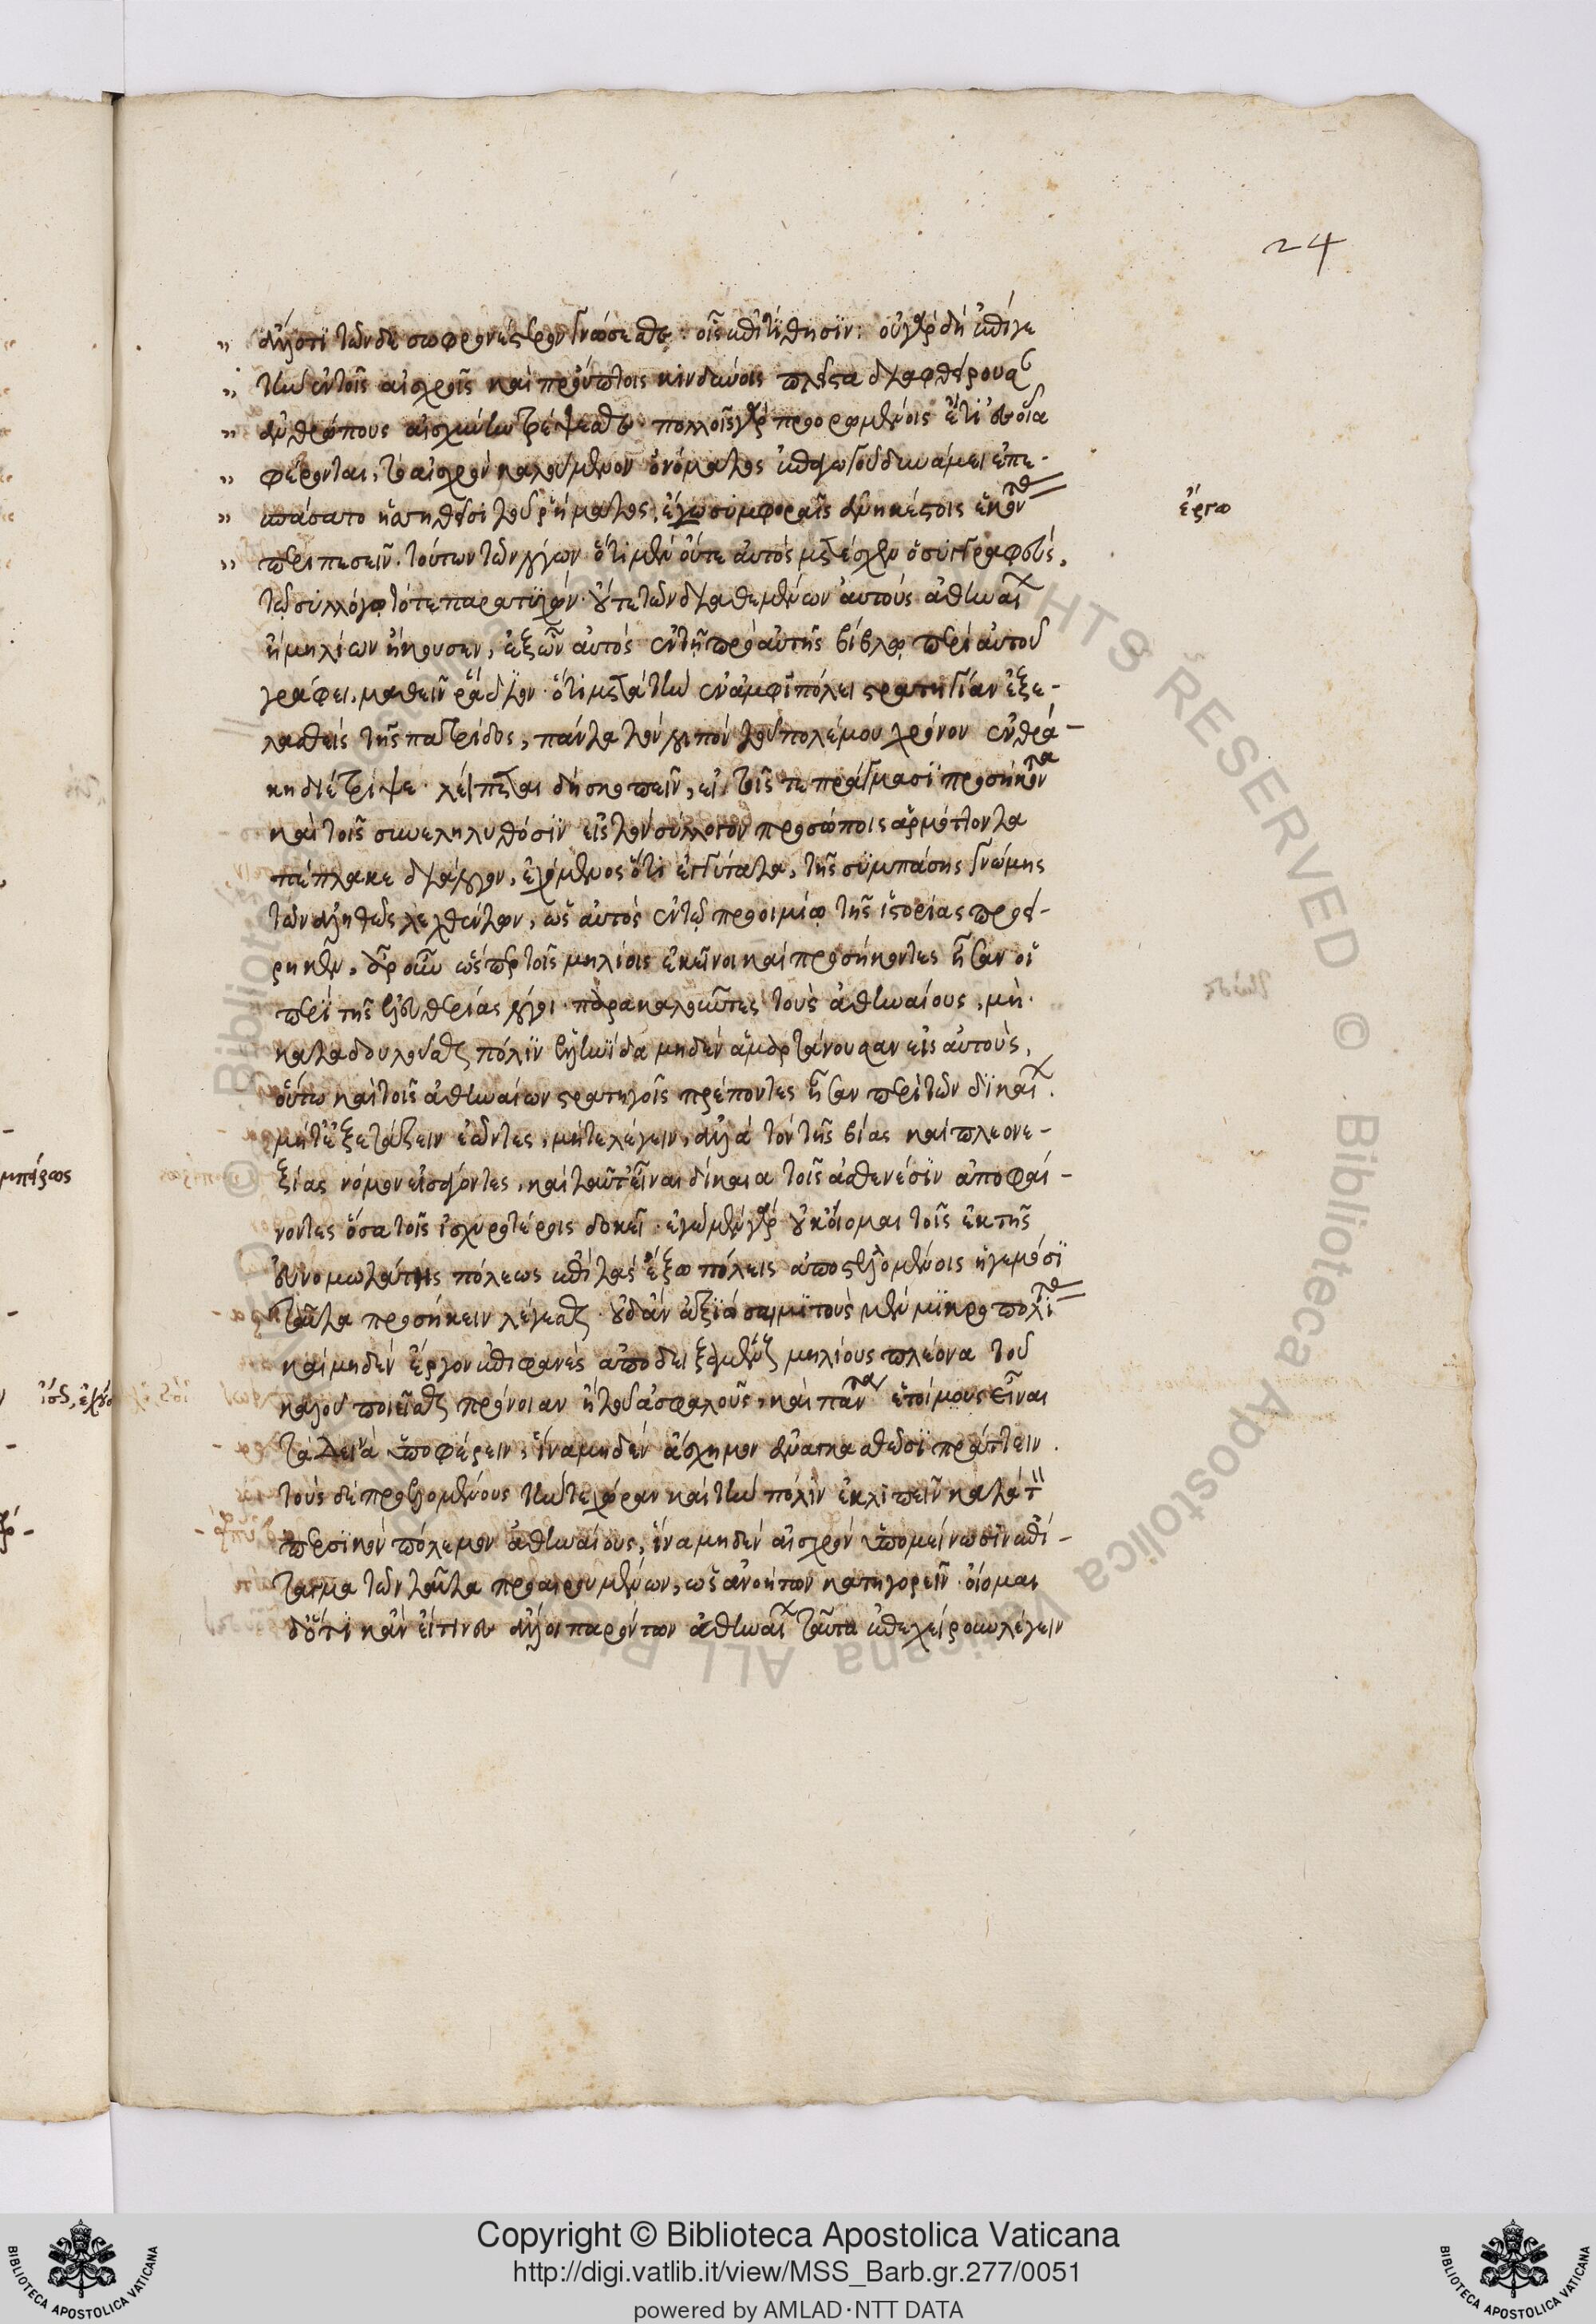 24
ἄλλό τι τῶνδε σωφρονέστερον γνώσεσθε· οἷς ἐπιτίθησιν· οὐ γὰρ δὴ ἐπί γε
τὴν ἐν τοῖς αἰσχροῖς καὶ προὔπτοις κινδύνοις πλεῖστα διαφθείρουσαν
ἀνθρώπους αἰσχύνην τρέψεσθε· πολλοῖς γὰρ προορωμένοις ἔτι ἐς οἷα
φέρονται, τὸ αἰσχρὸν καλούμενον ὀνόματος ἐπαγωγοῦ δυνάμει ἐπε-
σπάσατο ἡσσηθεῖσι τοῦ ῥήματος, ἐγω συμφοραῖς ἀνηκέστοις ἑκόντας
ἔργω
περιπεσεῖν. τούτων τῶν λόγων ὅτι μὲν οὔτε αὐτὸς μετέσχεν ὁ συγγραφεὺς,
τῷ συλλόγῳ τότε παρατυχών· οὔτε τῶν διαθεμένων αὐτοὺς ἀθηναίων
ἢ μηλίων ἤκουσεν, ἐξ ὧν αὐτὸς ἐν τῇ πρὸ αὐτῆς βίβλῳ περὶ αὐτοῦ
γράφει, μαθεῖν ῥάδιον· ὅτι μετὰ τὴν ἐν ἀμφιπόλει στρατηγίαν ἐξε-
λαθεὶς τῆς πατρίδος, πάντα τὸν λοιπὸν τοῦ πολέμου χρόνον ἐν θρά-
κῃ διέτριψε· λείπεται δὴ σκοπεῖν, εἰ τοῖς τε πράγμασι προσήκοντα
καὶ τοῖς συνεληλυθόσιν εἰς τὸν σύλλογον προσώποις ἁρμόττοντα
πέπλακε διάλογον, ἐχόμενος ὅτι ἐγγύτατα, τῆς συμπάσης γνώμης
τῶν ἀληθῶς λεχθέντων, ὡς αὐτὸς ἐν τῷ προοιμίῳ τῆς ἱστορίας προεί-
ρηκεν, ἆρ οὖν ὥσπερ τοῖς μηλίοις ἐκεῖνοι καὶ προσήκοντες ἦσαν οἱ
περὶ τῆς ἐλευθερίας λόγοι· παρακαλοῦντες τοὺς ἀθηναίους, μὴ
καταδουλοῦσθαι πόλιν ἑλληνίδα μηδὲν ἁμαρτάνουσαν εἰς αὐτοὺς,
οὕτω καὶ τοῖς ἀθηναίων στρατηγοῖς πρέποντες ἦσαν περὶ τῶν δικαίων
μήτ' ἐξετάζειν ἐῶντες, μήτε λέγειν, ἀλλὰ τὸν τῆς βίας καὶ πλεονε-
ξίας νόμον εἰσάγοντες, καὶ ταῦτ' εἶναι δίκαια τοῖς ἀσθενέσιν ἀποφαί-
νοντες ὅσα τοῖς ἰσχυροτέροις δοκεῖ· ἐγὼ μὲν γὰρ οὐκ οἴομαι τοῖς ἐκ τῆς
εὐνομωτάτης πόλεως ἐπὶ τὰς ἔξω πόλεις ἀποστελλομένοις ἡγεμόσι
ταῦτα προσήκειν λέγεσθαι· οὐδ' ἂν ἀξιώσαιμι τοὺς μὲν μικροπολίτας
καὶ μηδὲν ἔργον ἐπιφανὲς ἀποδειξαμένους μηλίους πλείονα τοῦ
καλοῦ ποιεῖσθαι πρόνοιαν ἢ τοῦ ἀσφαλοῦς, καὶ πάντα ἑτοίμους εἶναι
τὰ δεινὰ ὑποφέρειν, ἵνα μηδὲν ἄσχημον ἀναγκασθῶσι πράττειν.
τοὺς δὲ προελομένους τήν τε χώραν καὶ τὴν πόλιν ἐκλιπεῖν κατὰ τὸν
περσικὸν πόλεμον ἀθηναίους, ἵνα μηδὲν αἰσχρὸν ὑπομείνωσιν ἐπί-
ταγμα τῶν ταῦτα προαιρουμένων, ὡς ἀνοήτων κατηγορεῖν· οἴομαι
δ' ὅτι κἂν εἴ τινες ἄλλοι παρόντων ἀθηναίων ταῦτα ἐπεχείρουν λέγειν
Copyright © Biblioteca Apostolica Vaticana
http://digi.vatlib.it/view/MSS_Barb.gr.277/0051
powered by AMLAD·NTT DATA